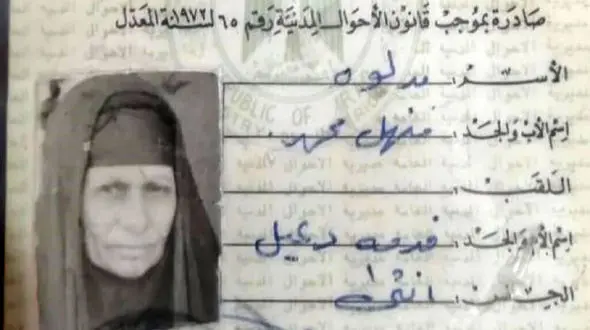 صادرة بموجب قانون الأحوال المدنية رقم ٦٥ لسنة ١٩٧٢ المعدل
الأسم: مدلوه
إسم الأب والجد: منهل محمد
اللقب:
إسم الأم والجد:
الجنس: انثى